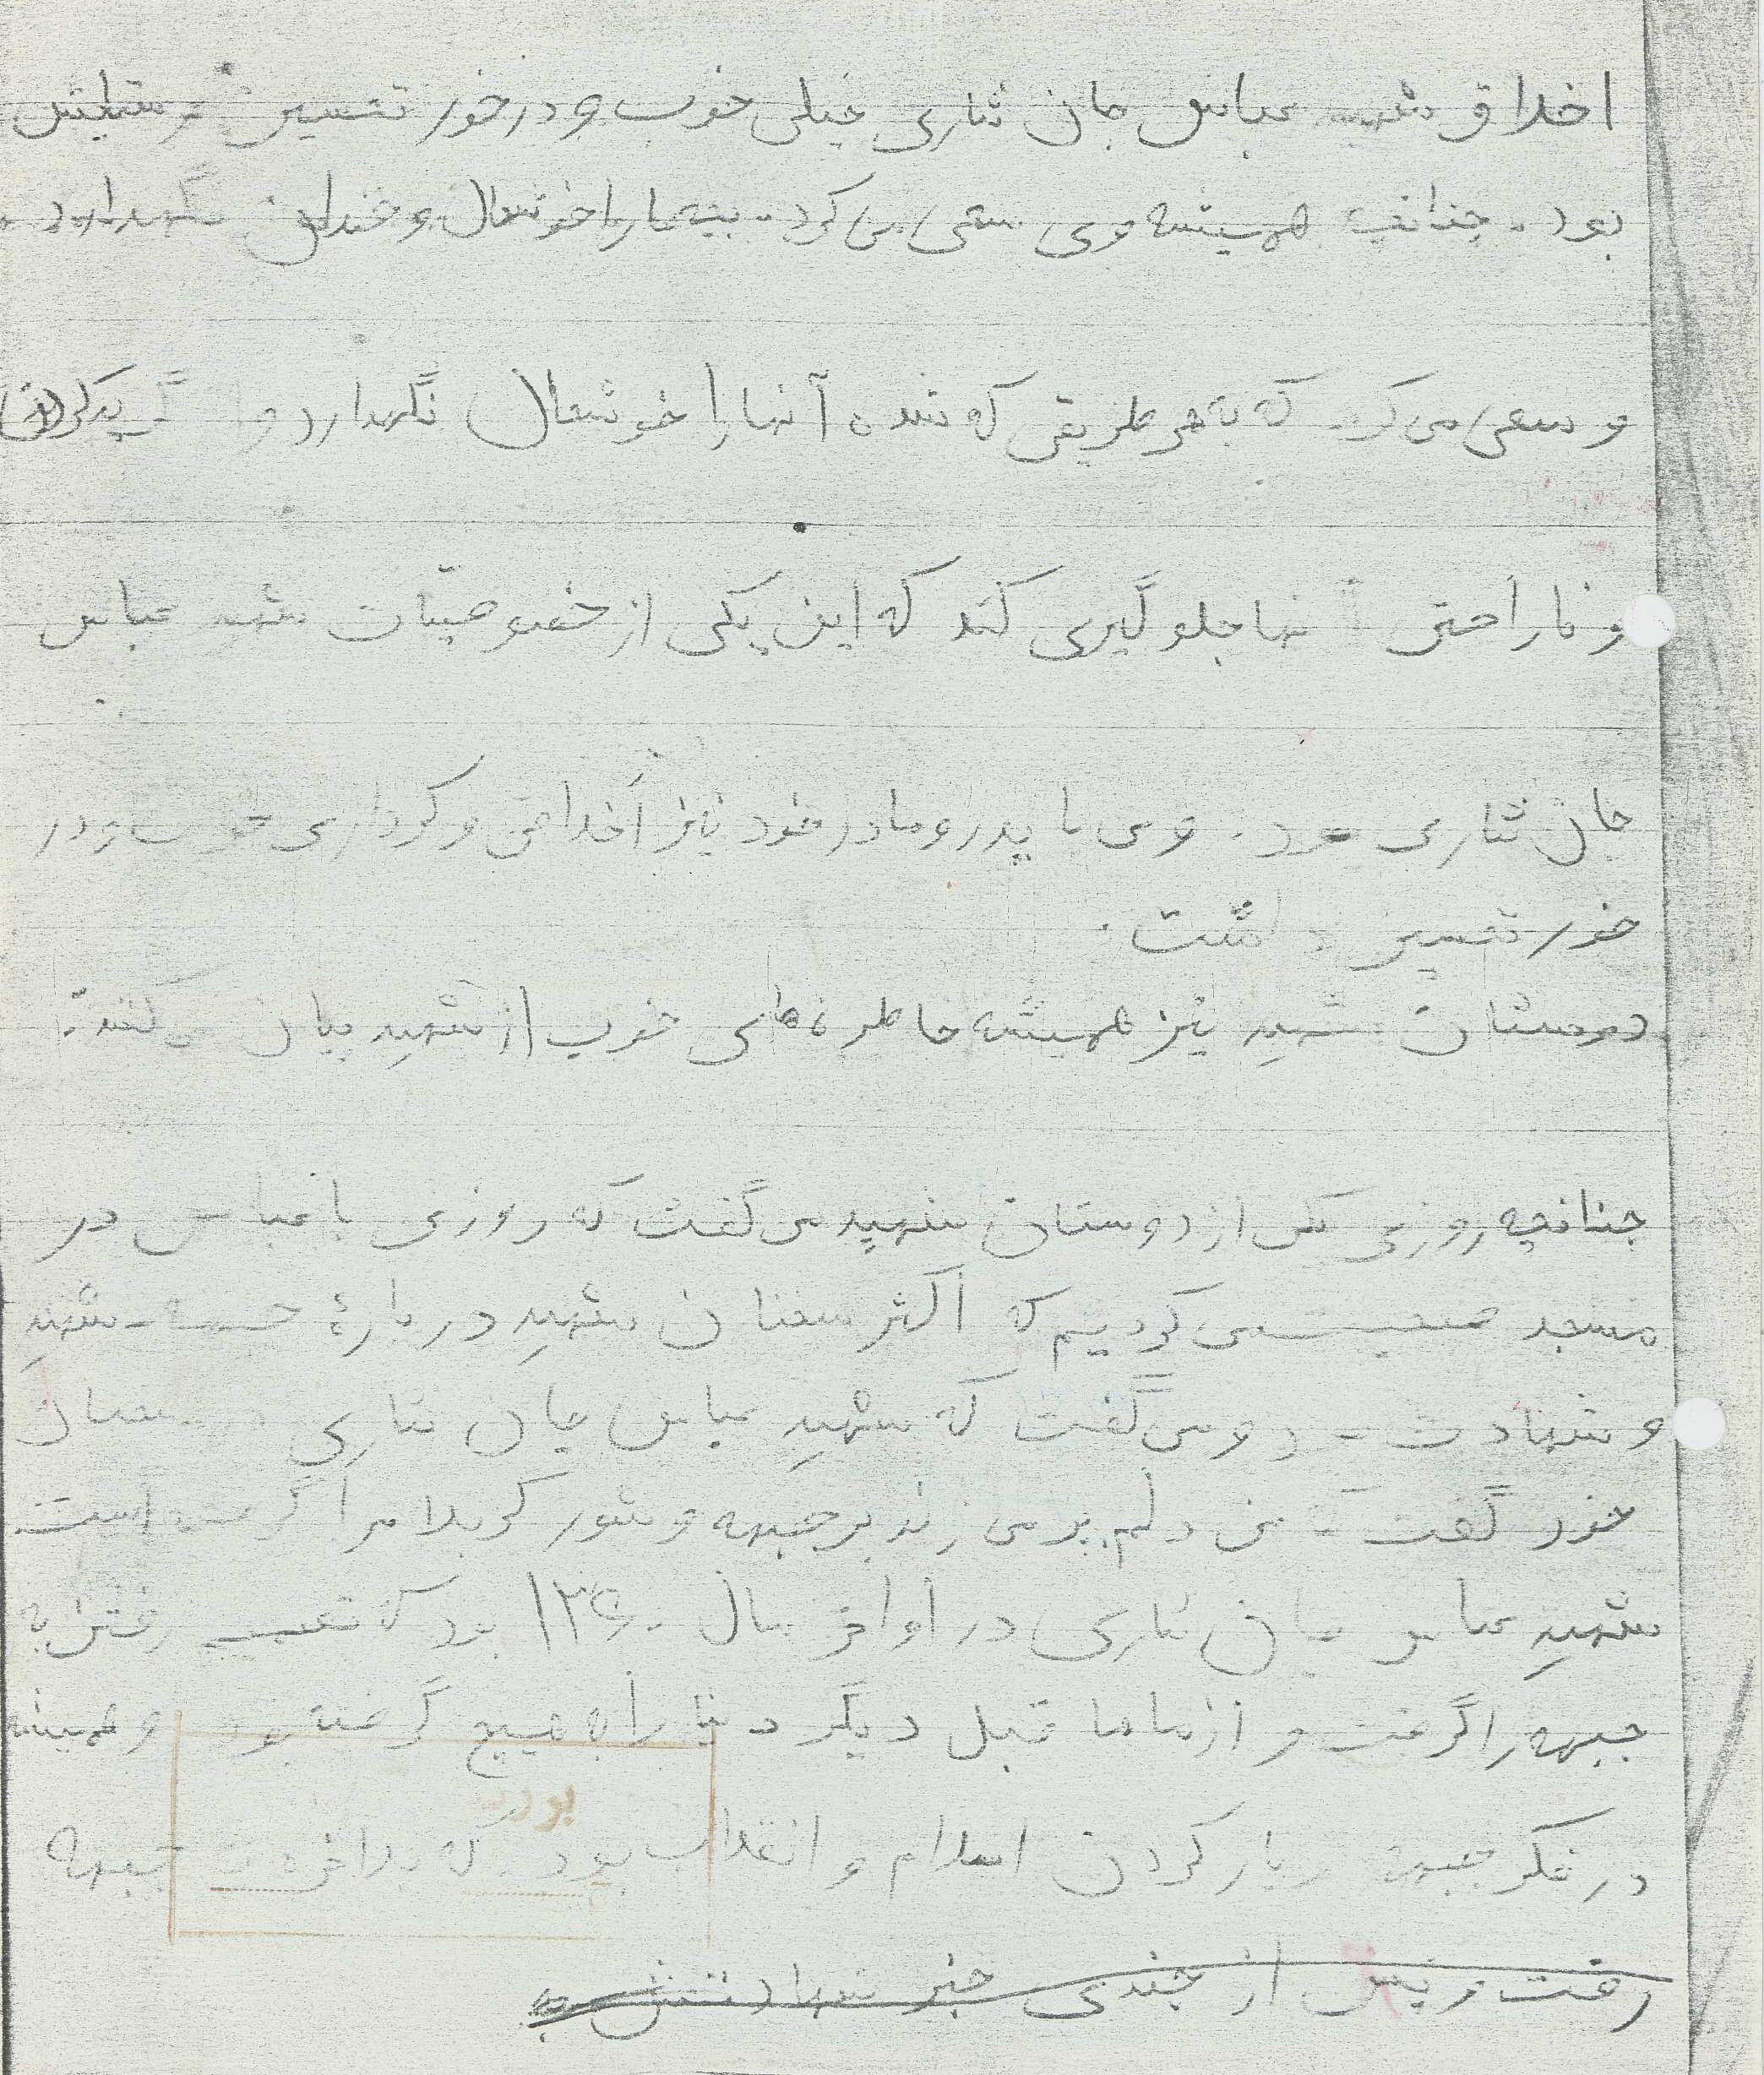 اخلاق شهید عباس جان نثاری خیلی خوب و در خور تحسین و ستایش
بود. چنانچه همیشه وی سعی می کرد. بچه ها را خوشحال و خندان نگهدارد.
و سعی می کرد که به هر طریقی که شده آنها را خوشحال نگهدارد و از گریه کردن
و ناراحتی آنها جلوگیری کند که این یکی از خصوصیّات شهید عباس
جان نثاری بود. وی با پدر و مادر خود نیز اخلاقی و کرداری خوب و در
خور تحسین داشت.
دوستان شهید نیز همیشه خاطره های خوب از شهید بیان می کنند.
چنانچه روزی یکی از دوستان شهید می گفت که روزی با عباس در
مسجد صحبت می کردیم که اکثر سخنان شهید دربارهٔ شهید
و شهادت بود و می گفت که شهید عباس جان نثاری در سخنان
خود گفت که من دلم پر می زند بر جبهه و شور کربلا مرا گرفته است
شهید عباس جان نثاری در اواخر سال ۱۳۶۰ بود که تصمیم رفتن به
جبهه را گرفت و از ماه ها قبل دیگر دنیا را به هیچ گرفته بود و همیشه
در فکر جبهه و یار کردن اسلام و انقلاب بود که بالاخره به جبهه
رفت و پس از چندی خبر شهادتش به